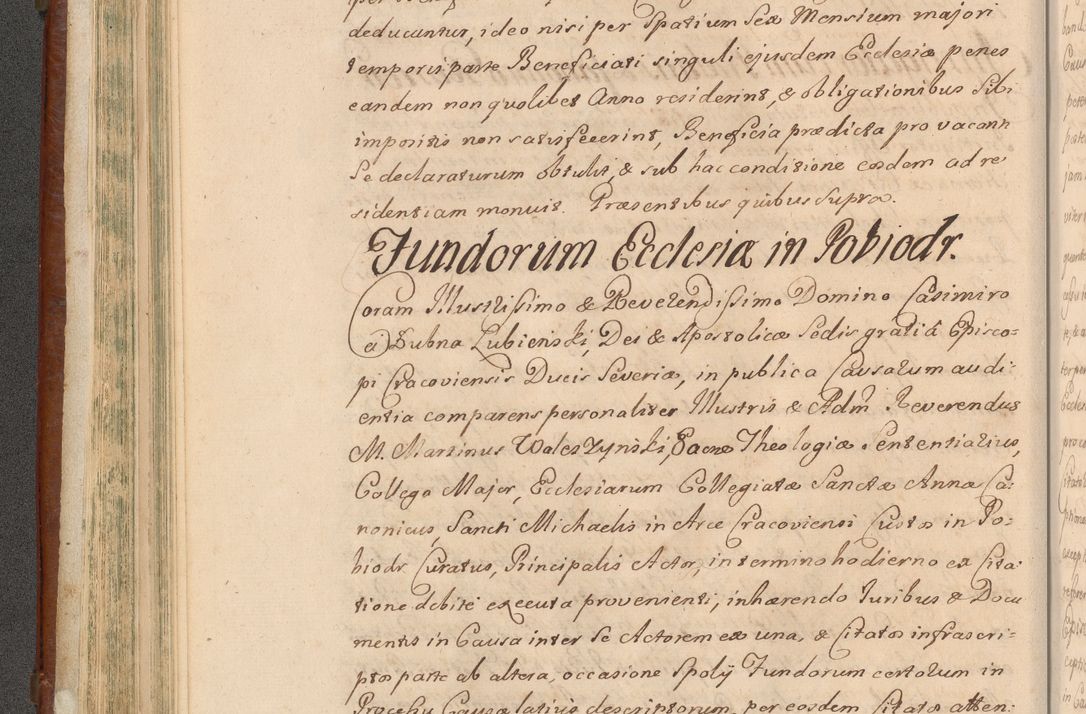 deducantur, ideo nisi per Spatium Sex Mensium majori
temporis parte Beneficiati singuli ejusdem Ecclesiæ penes
eandem non quolibet Anno residerint, & obligationibus Sibi
impositis non satisfecerint, Beneficia prædicta pro vacann
Se declaraturum obtulit, & sub hac conditione eosdem ad re
sidentiam monuit. Præsentibus quibus Supra.
Fundorum Ecclesiæ in Pobiodr.
Coram Illustrissimo & Reverendissimo Domino Casimiro
a Lubna Lubienski, Dei & Apostolicæ Sedis gratiâ Episco-
pi Cracoviensis Ducis Severiæ, in publica Causarum audi-
entia comparens personaliter Illustris & Adm Reverendus
M. Martinus Waleszynski, Sacræ Theologiæ Sententiarius,
Collega Major, Ecclesiarum Collegiatæ Sanctæ Annæ Ca-
nonicus, Sancti Michaelis in Arce Cracoviensi Custos in Po-
biodr Curatus, Principalis Actor, in termino hodierno ex Cita-
tione debite executa provenienti, inhærendo Juribus & Docu
mentis in Causa inter Se Actorem ex una, & Citatos infrascri-
ptos parte ab altera, occasione Spolij Fundorum certorum in
Processu Causæ latius descriptorum, per eosdem Citatos atten-